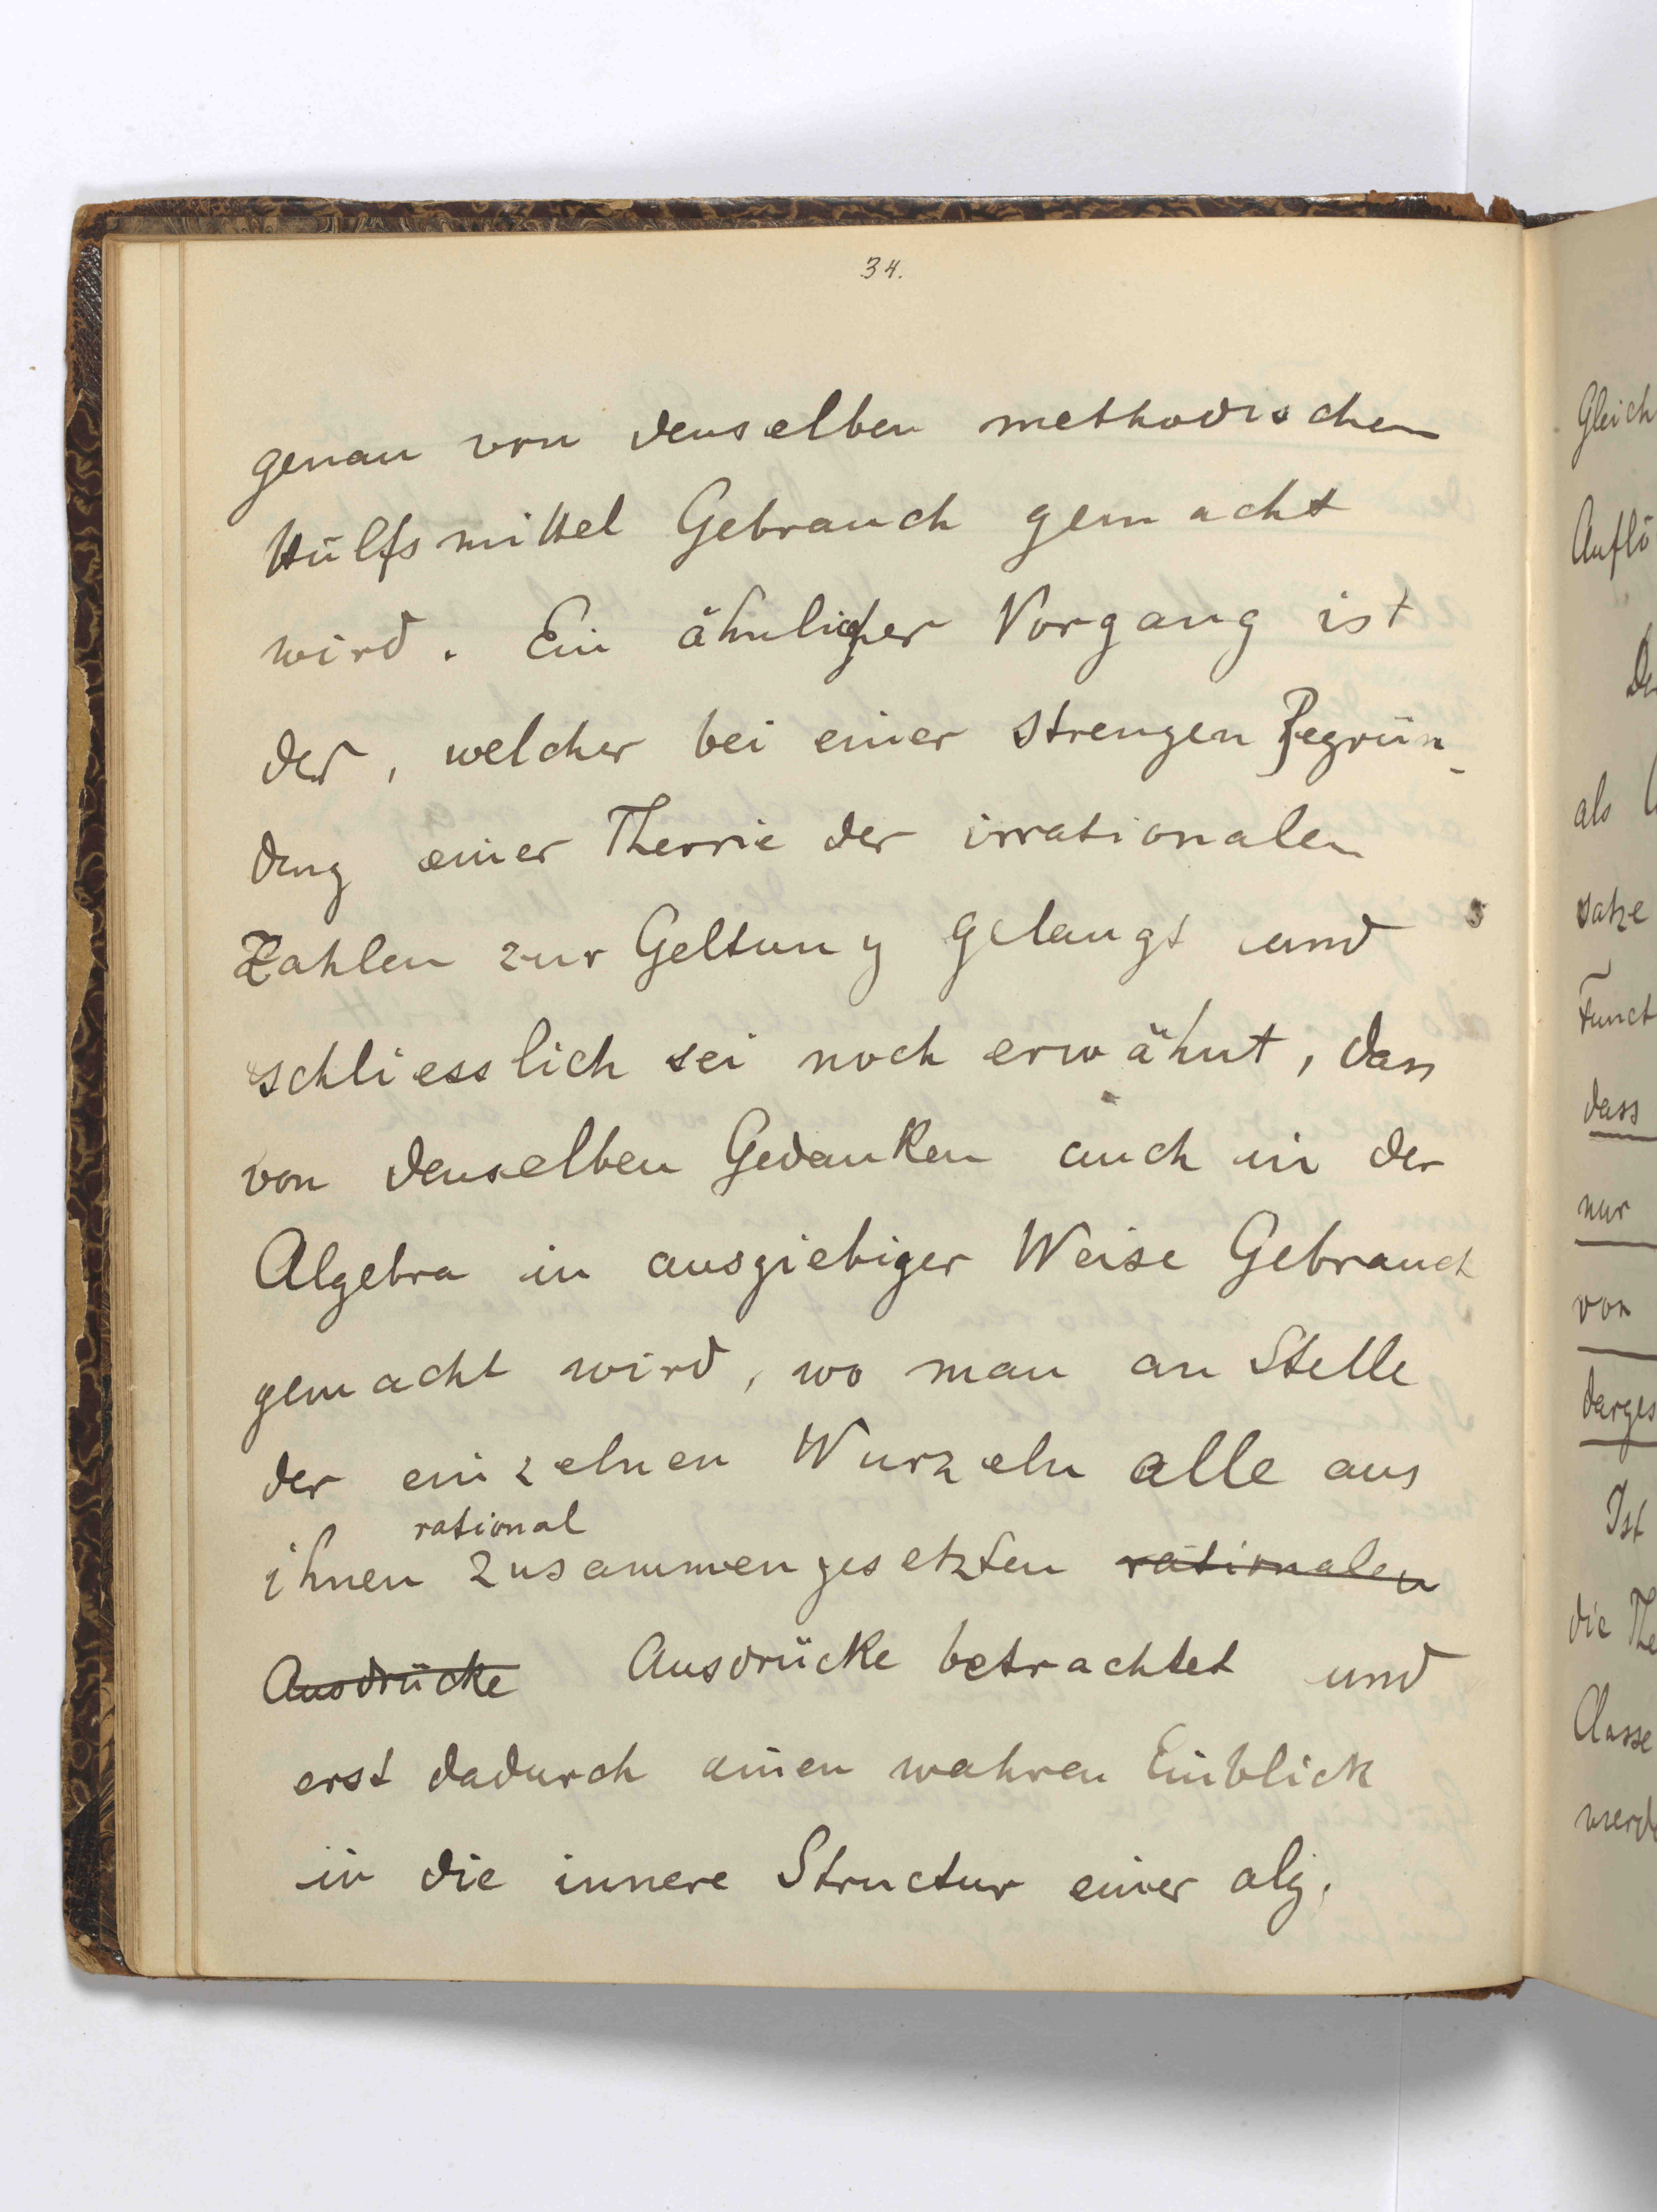 34.
genau von denselben methodischen
Hülfsmittel Gebrauch gemacht
wird. Ein ähnlicher Vorgang ist
der, welcher bei einer strengen Begrün-
dung einer Theorie der irrationalen
Zahlen zur Geltung gelangt und
schliesslich sei noch erwähnt, dass
von denselben Gedanken auch in der
Algebra in ausgiebiger Weise Gebrauch
gemacht wird, wo man an Stelle
der einzelnen Wurzeln alle aus
rational
ihnen zusammengesetzten rationalen
Ausdrücke Ausdrücke betrachtet und
erst dadurch einen wahren Einblick
in die innere Structur einer alg.
Gleich
Auflö
De
als
satze
Funct
dass
nur
von
darges
Ist
die The
Classe
werde